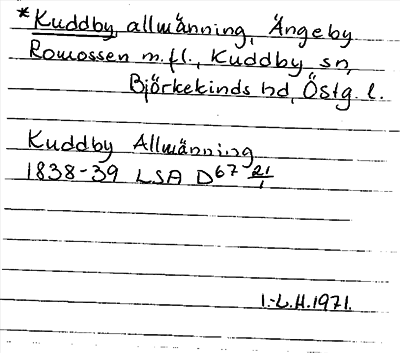 *Kuddby, allmänning, Ängeby
Romossen m.fl., Kuddby sn,
Björkekinds hd, Östg. l.
Kuddby Allmänning
1838-39 LSA D67 21/1
I.-L.H.1971.